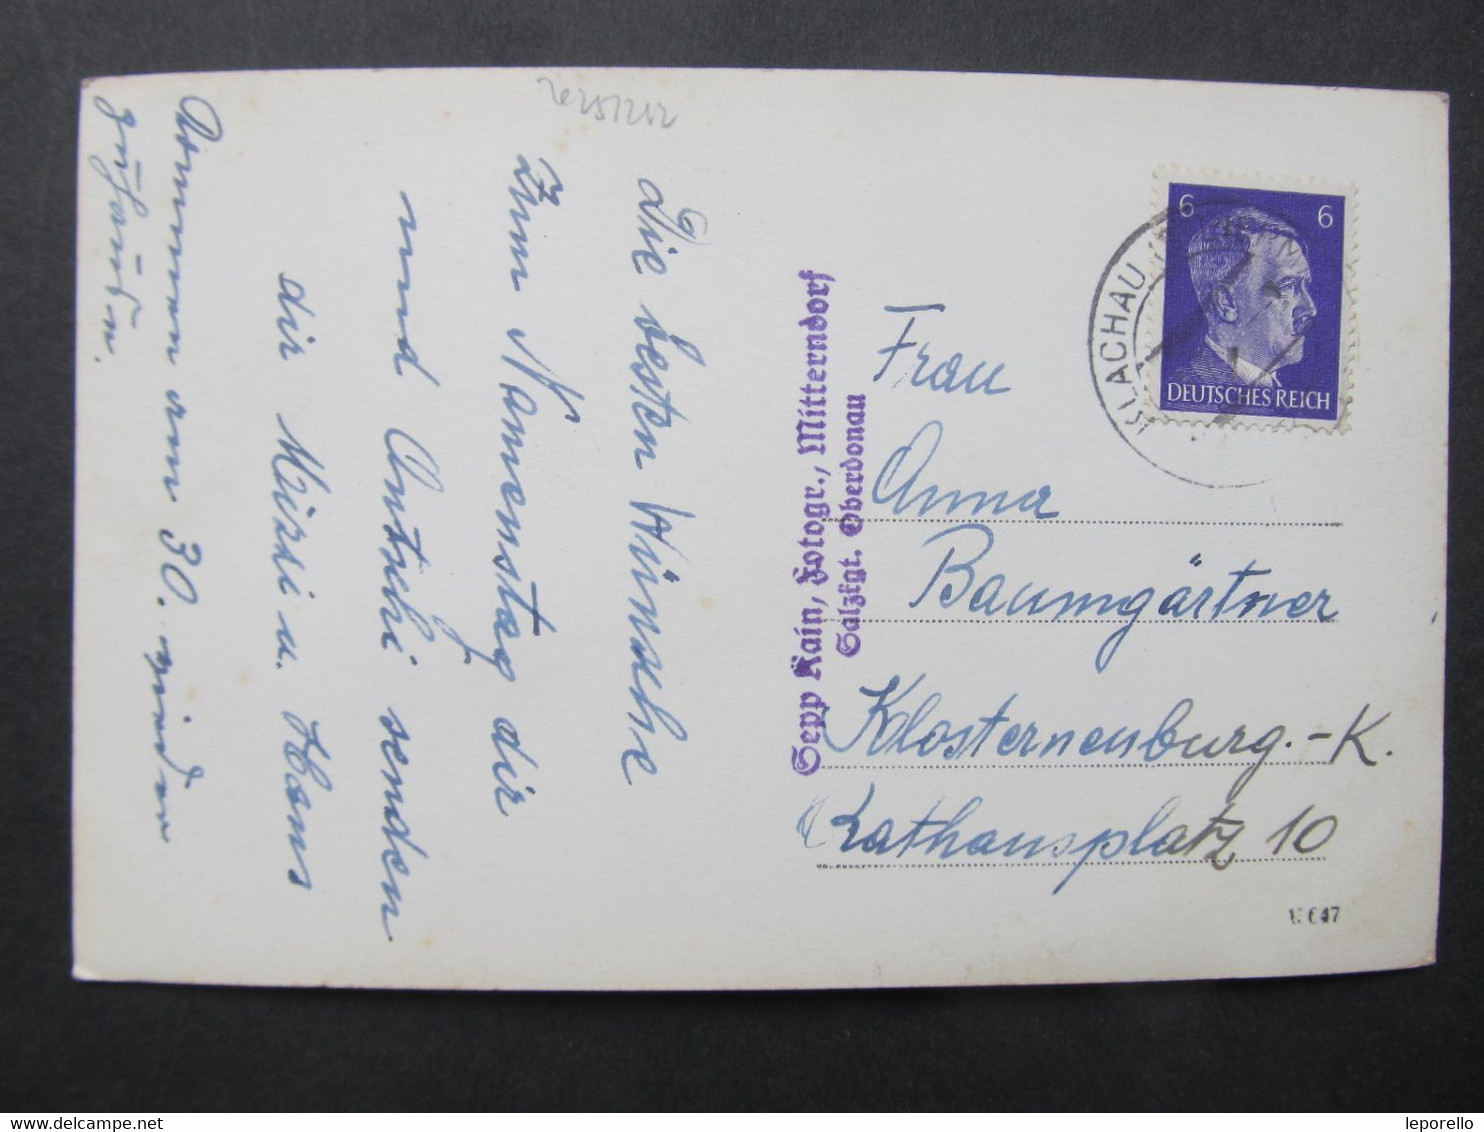 Die besten Wünsche
zum Namenstag dir
und Antschi senden
dir Mizzi u. Hans
Kommen am 30. wieder
zuhause.
Sepp Kain, Fotogr., Mitterndorf
Salzkgt. Oberdonau
6 6
DEUTSCHES REICH
KLACHAU
Frau
Anna
Baumgärtner
Klosterneuburg.-K.
Rathausplatz 10
V 647
delcampe.net
leporello